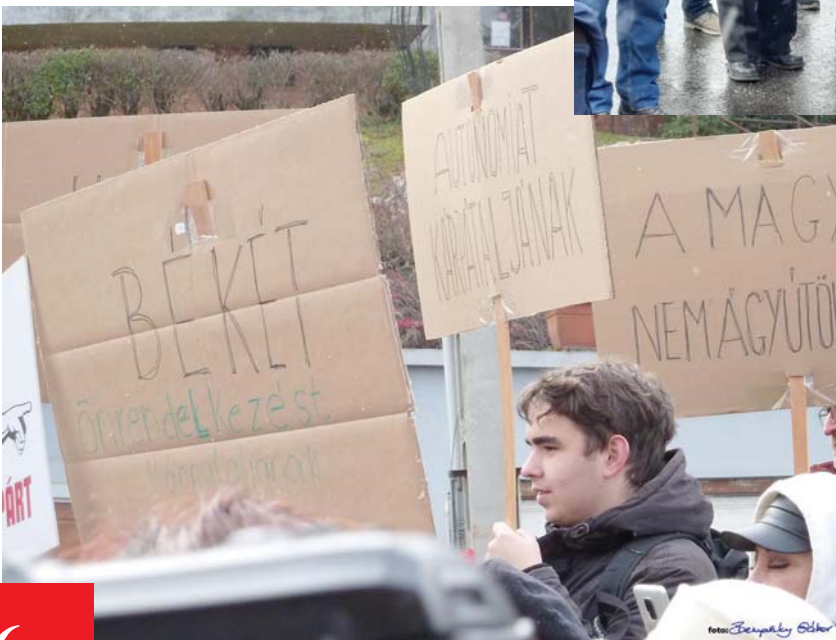 BÉKÉT
önrendelkezést
Kárpátaljának
AUTONÓMIÁT
KÁRPÁTALJÁNAK
A MAGY
NEM ÁGYÚTÖ
PÁRT
foto: Benyovszky Gábor